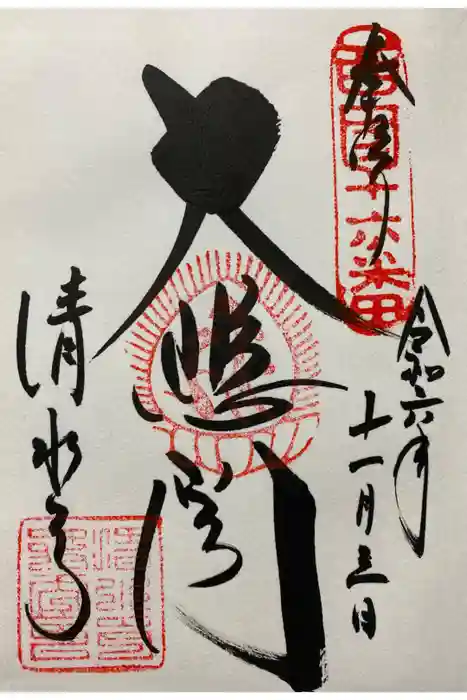 奉拝
西国十六番
令和六年
十一月三日
大悲閣
清水寺